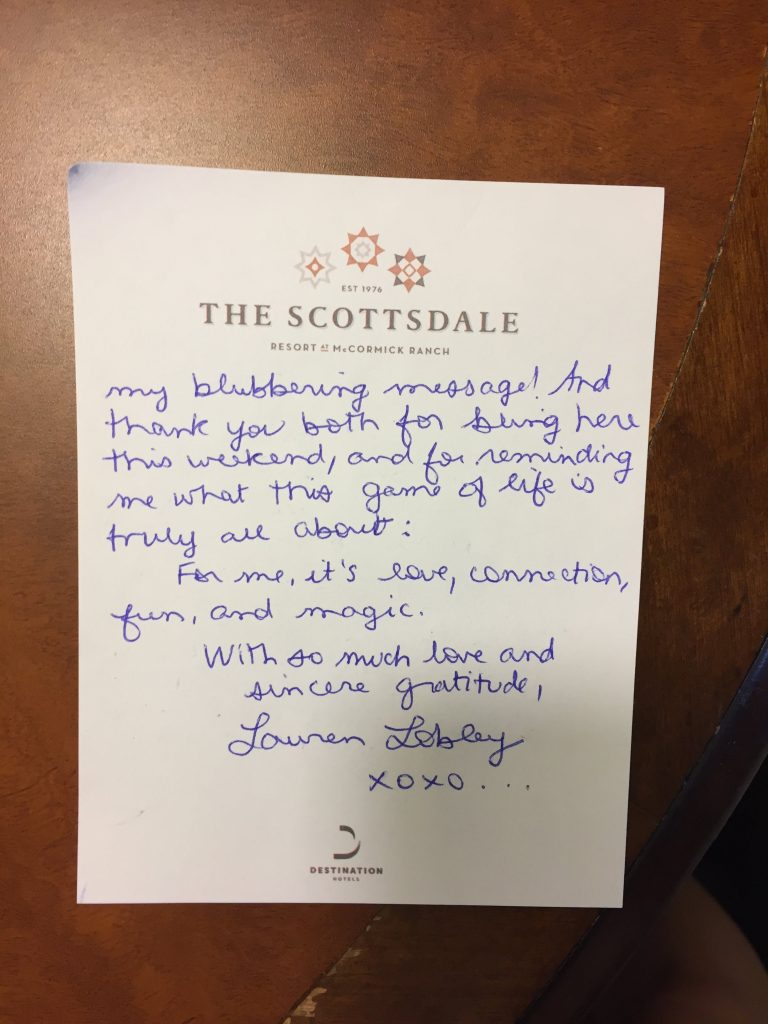 EST 1976
THE SCOTTSDALE
RESORT AT McCORMICK RANCH
my blubbering message! And
thank you both for being here
this weekend, and for reminding
me what this game of life is
truly all about:
For me, it's love, connection,
fun, and magic.
With so much love and
sincere gratitude,
Lauren Lobley
xoxo...
DESTINATION
HOTELS